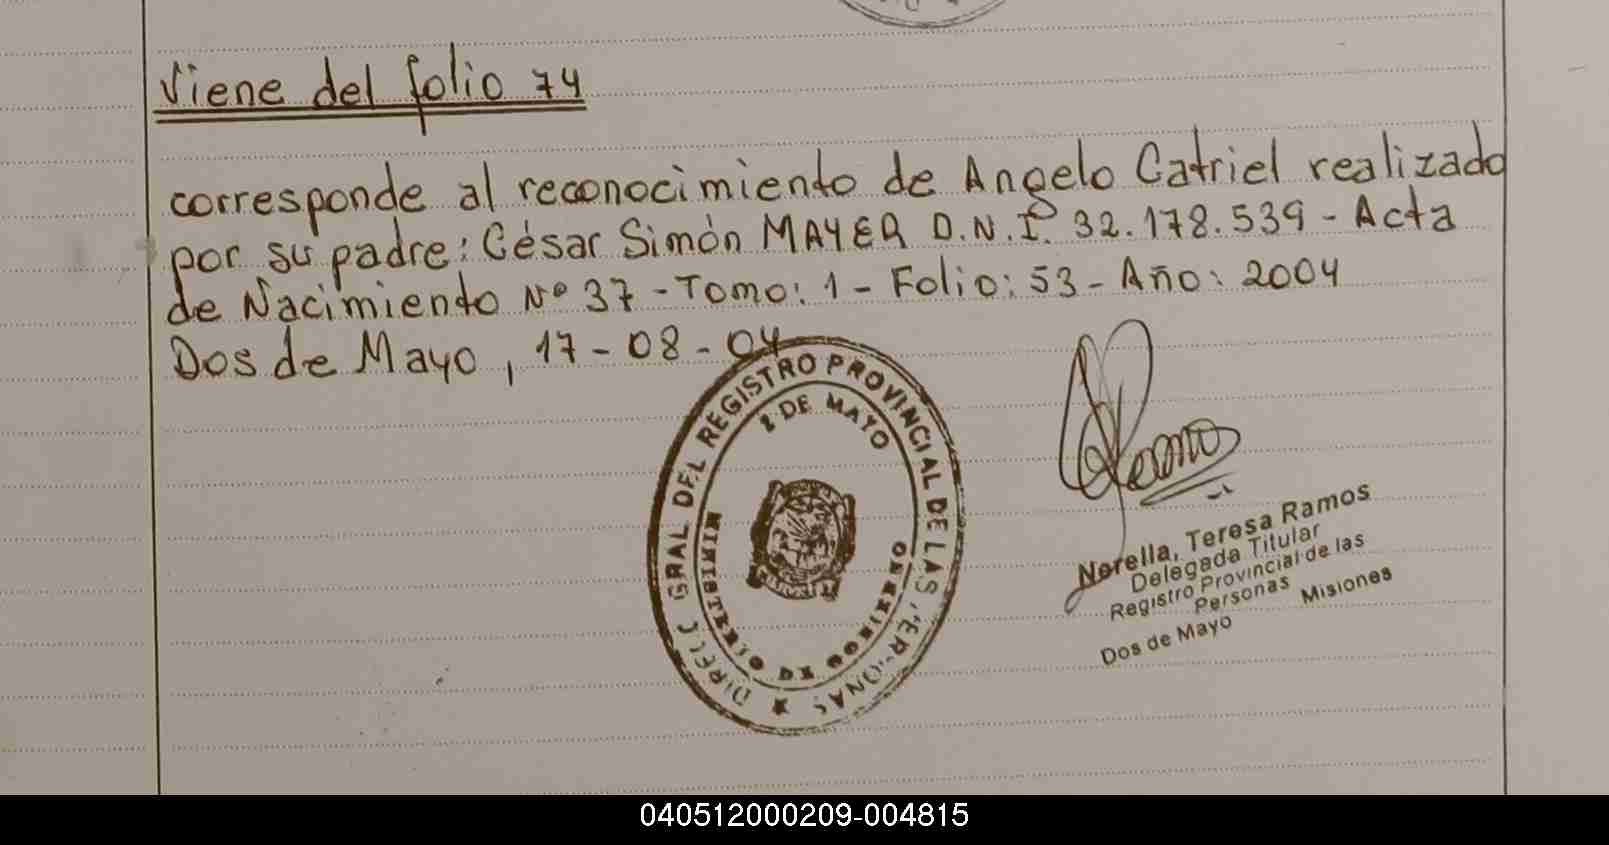 Viene del folio 74
corresponde al reconocimiento de Angelo Catriel realizado
por su padre: César Simón MAYER D.N.I. 32.178.539 - Acta
de Nacimiento Nº 37 - Tomo: 1 - Folio: 53 - Año: 2004
Dos de Mayo, 17-08-04
GRAL DEL REGISTRO PROVINCIAL DE LAS
2 DE MAYO
Norella, Teresa Ramos
Delegada Titular
Registro Provincial de las
Personas
Dos de Mayo Misiones
040512000209-004815